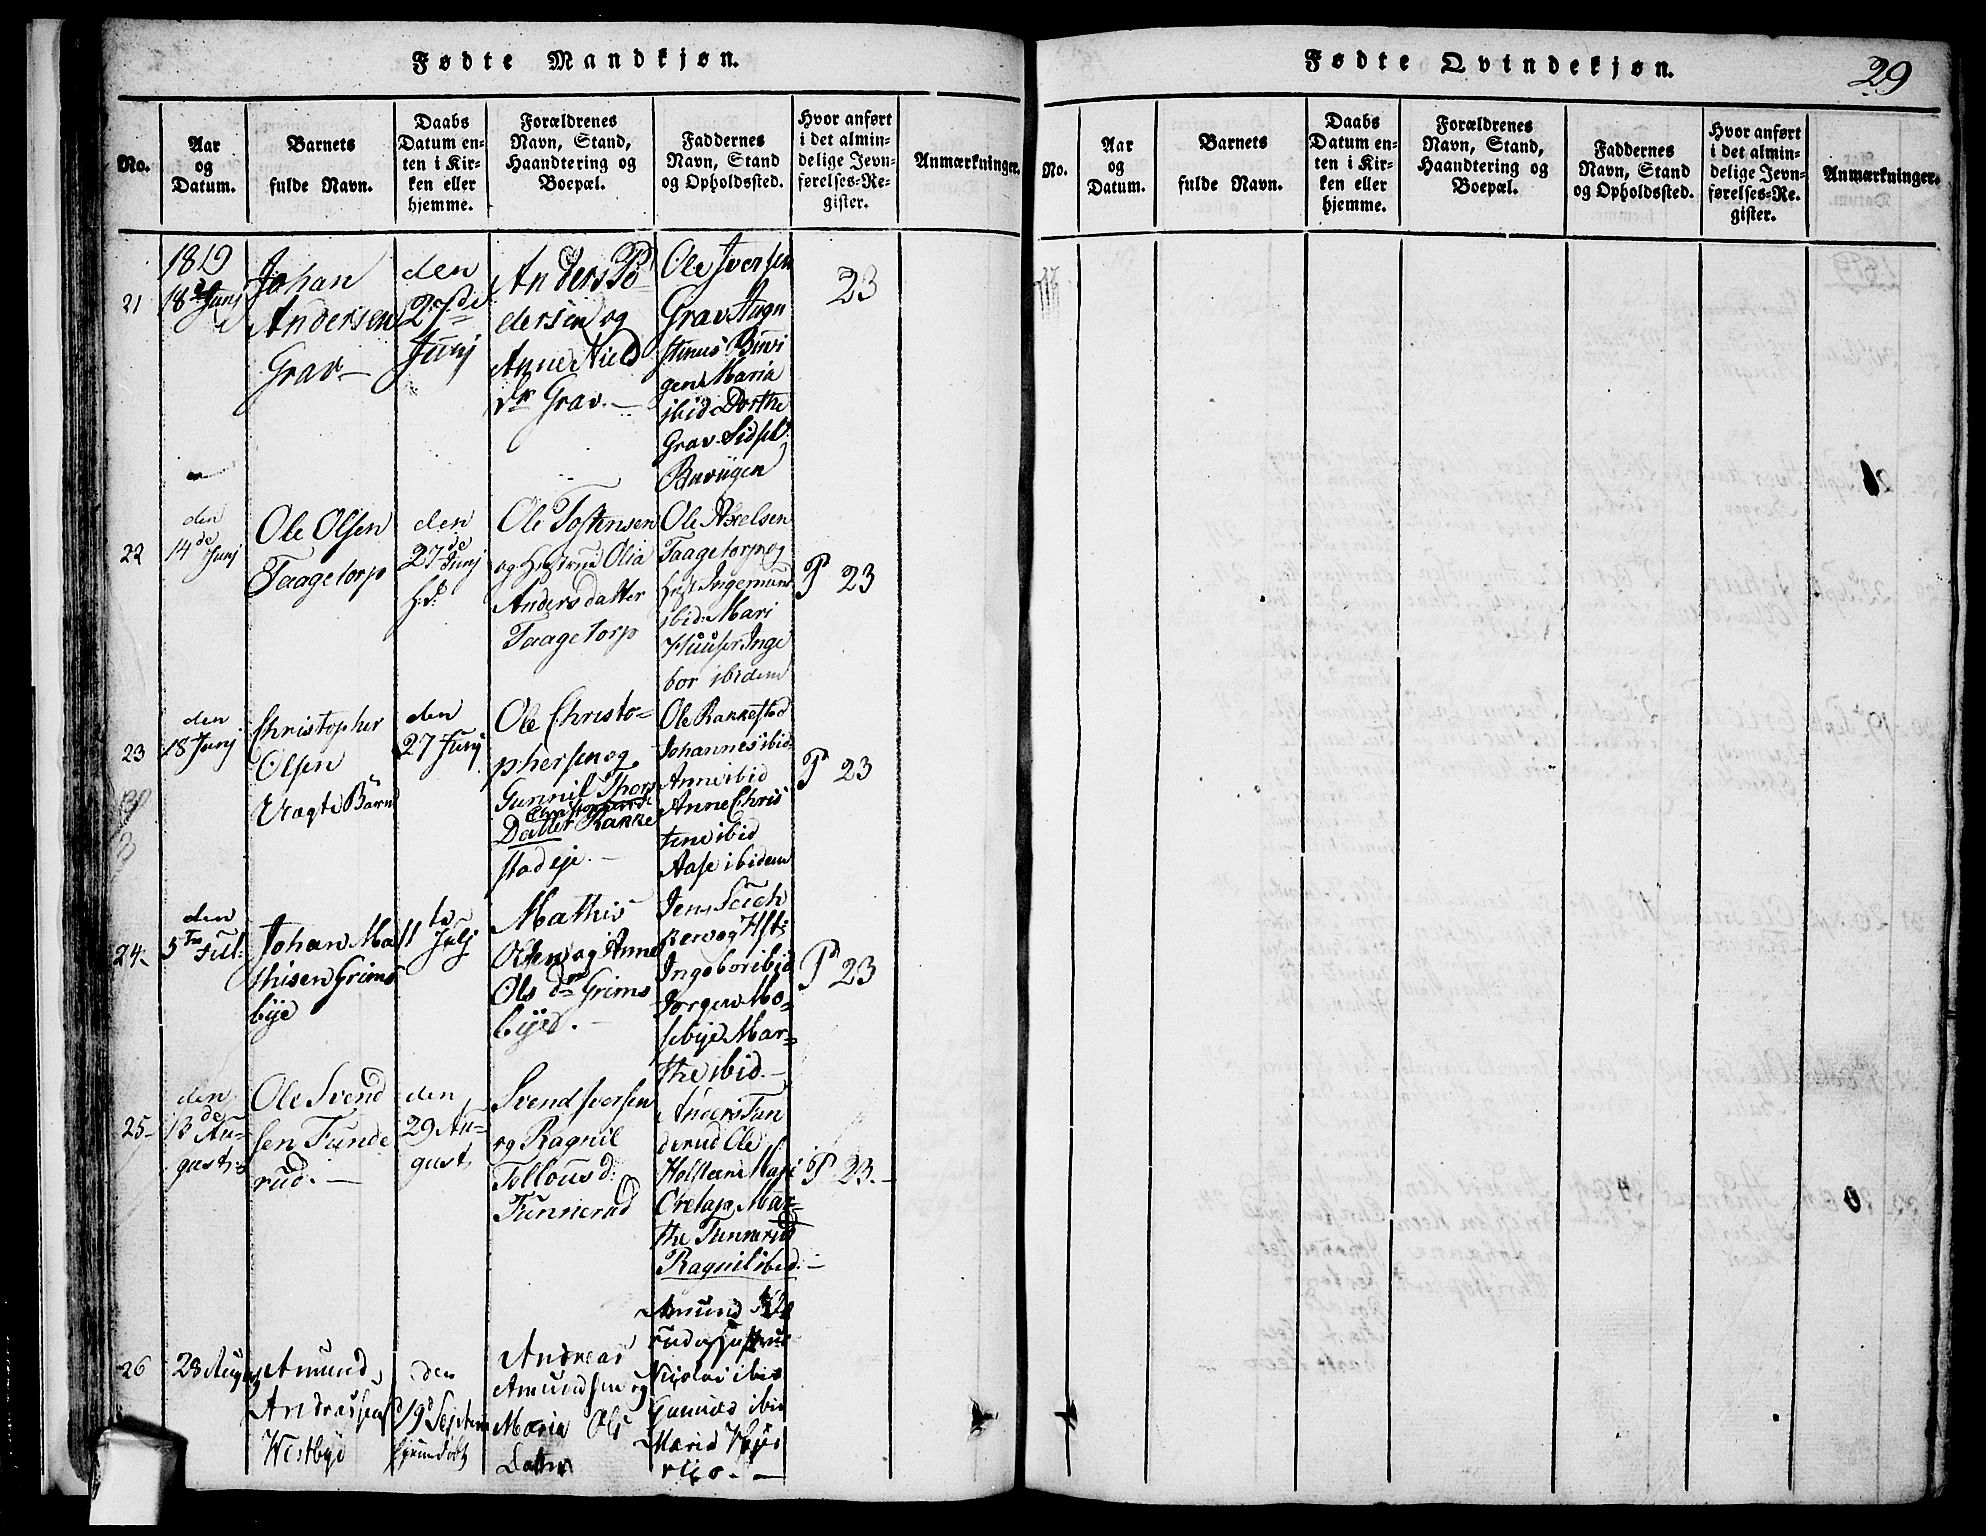 Fødte Mandkjøn.
No.
Aar
og
Datum.
Barnets
fulde Navn.
Daabs
Datum en-
ten i Kir-
ken eller
hjemme.
Forældrenes
Navn, Stand,
Haandtering og
Boepæl.
Faddernes
Navn, Stand
og Opholdssted.
Hvor anført
i det almin-
delige Jevn-
førelses-Re-
gister.
Anmærkninger.
21
1819
18de Junj
Johan
Andersen
Grav
den
27de
Junj
Anders Pe
dersen og
Anne Niels
dr Grav.
Ole Iversen
Grav Augu
stinus
gen Maria
ibid Dorthe
Grav Sidsel
23
22
den
14de
Junj
Ole Olsen
Taagetorp
den
27de
Junj
Ole Tostensen
og Olia
Andersdatter
Taagetorp
Ole Axelsen
Taagetorp og
Ingemund
ibid Mari
Huuser Inge
bor ibidem
P 23
23
den
18 Junj
Christopher
Olsen
Vagtebårn
den
27 Junj
Ole Christo-
phersen og
Gunnil Thors
Datter Rakke
stad eje.
Ole Rakkestad
Johannes ibid
Anne ibid
Anne Chris
tine ibid
Aase ibidem
P 23
24
den
5te Jul:
Johan Ma
thisen Grims
bye
11te
Julj
Mathis
Olsen og Anne
Ols dr Grims
bye.
Jens
Ingebor ibid
Jørgen Mo-
sebye Mar-
the ibid.
P 23
25
den
13de Au-
gust
Ole Svend
sen Tunde
rud.
den
29 Au-
gust
Svend Iversen
og Ragnil
d:
Tunnerud
Anders Tun
derud Ole
Holsteen Mari
Mar-
the Tunnerud
Ragnil ibid.
P 23.
26
28 Augus
Amund
Andreassen
Westbye
den
19d Septem
Andreas
Amundsen og
Maria Ols
Datter
Amund
Nicolai ibid
Gunild ibid
Marid
Fødte Qvindekjøn.
29
No.
Aar
og
Datum.
Barnets
fulde Navn.
Daabs
Datum en-
ten i Kir-
ken eller
hjemme.
Forældrenes
Navn, Stand,
Haandtering og
Boepæl.
Faddernes
Navn, Stand
og Opholdssted.
Hvor anført
i det almin-
delige Jevn-
førelses-Re-
gister.
Anmærkninger.